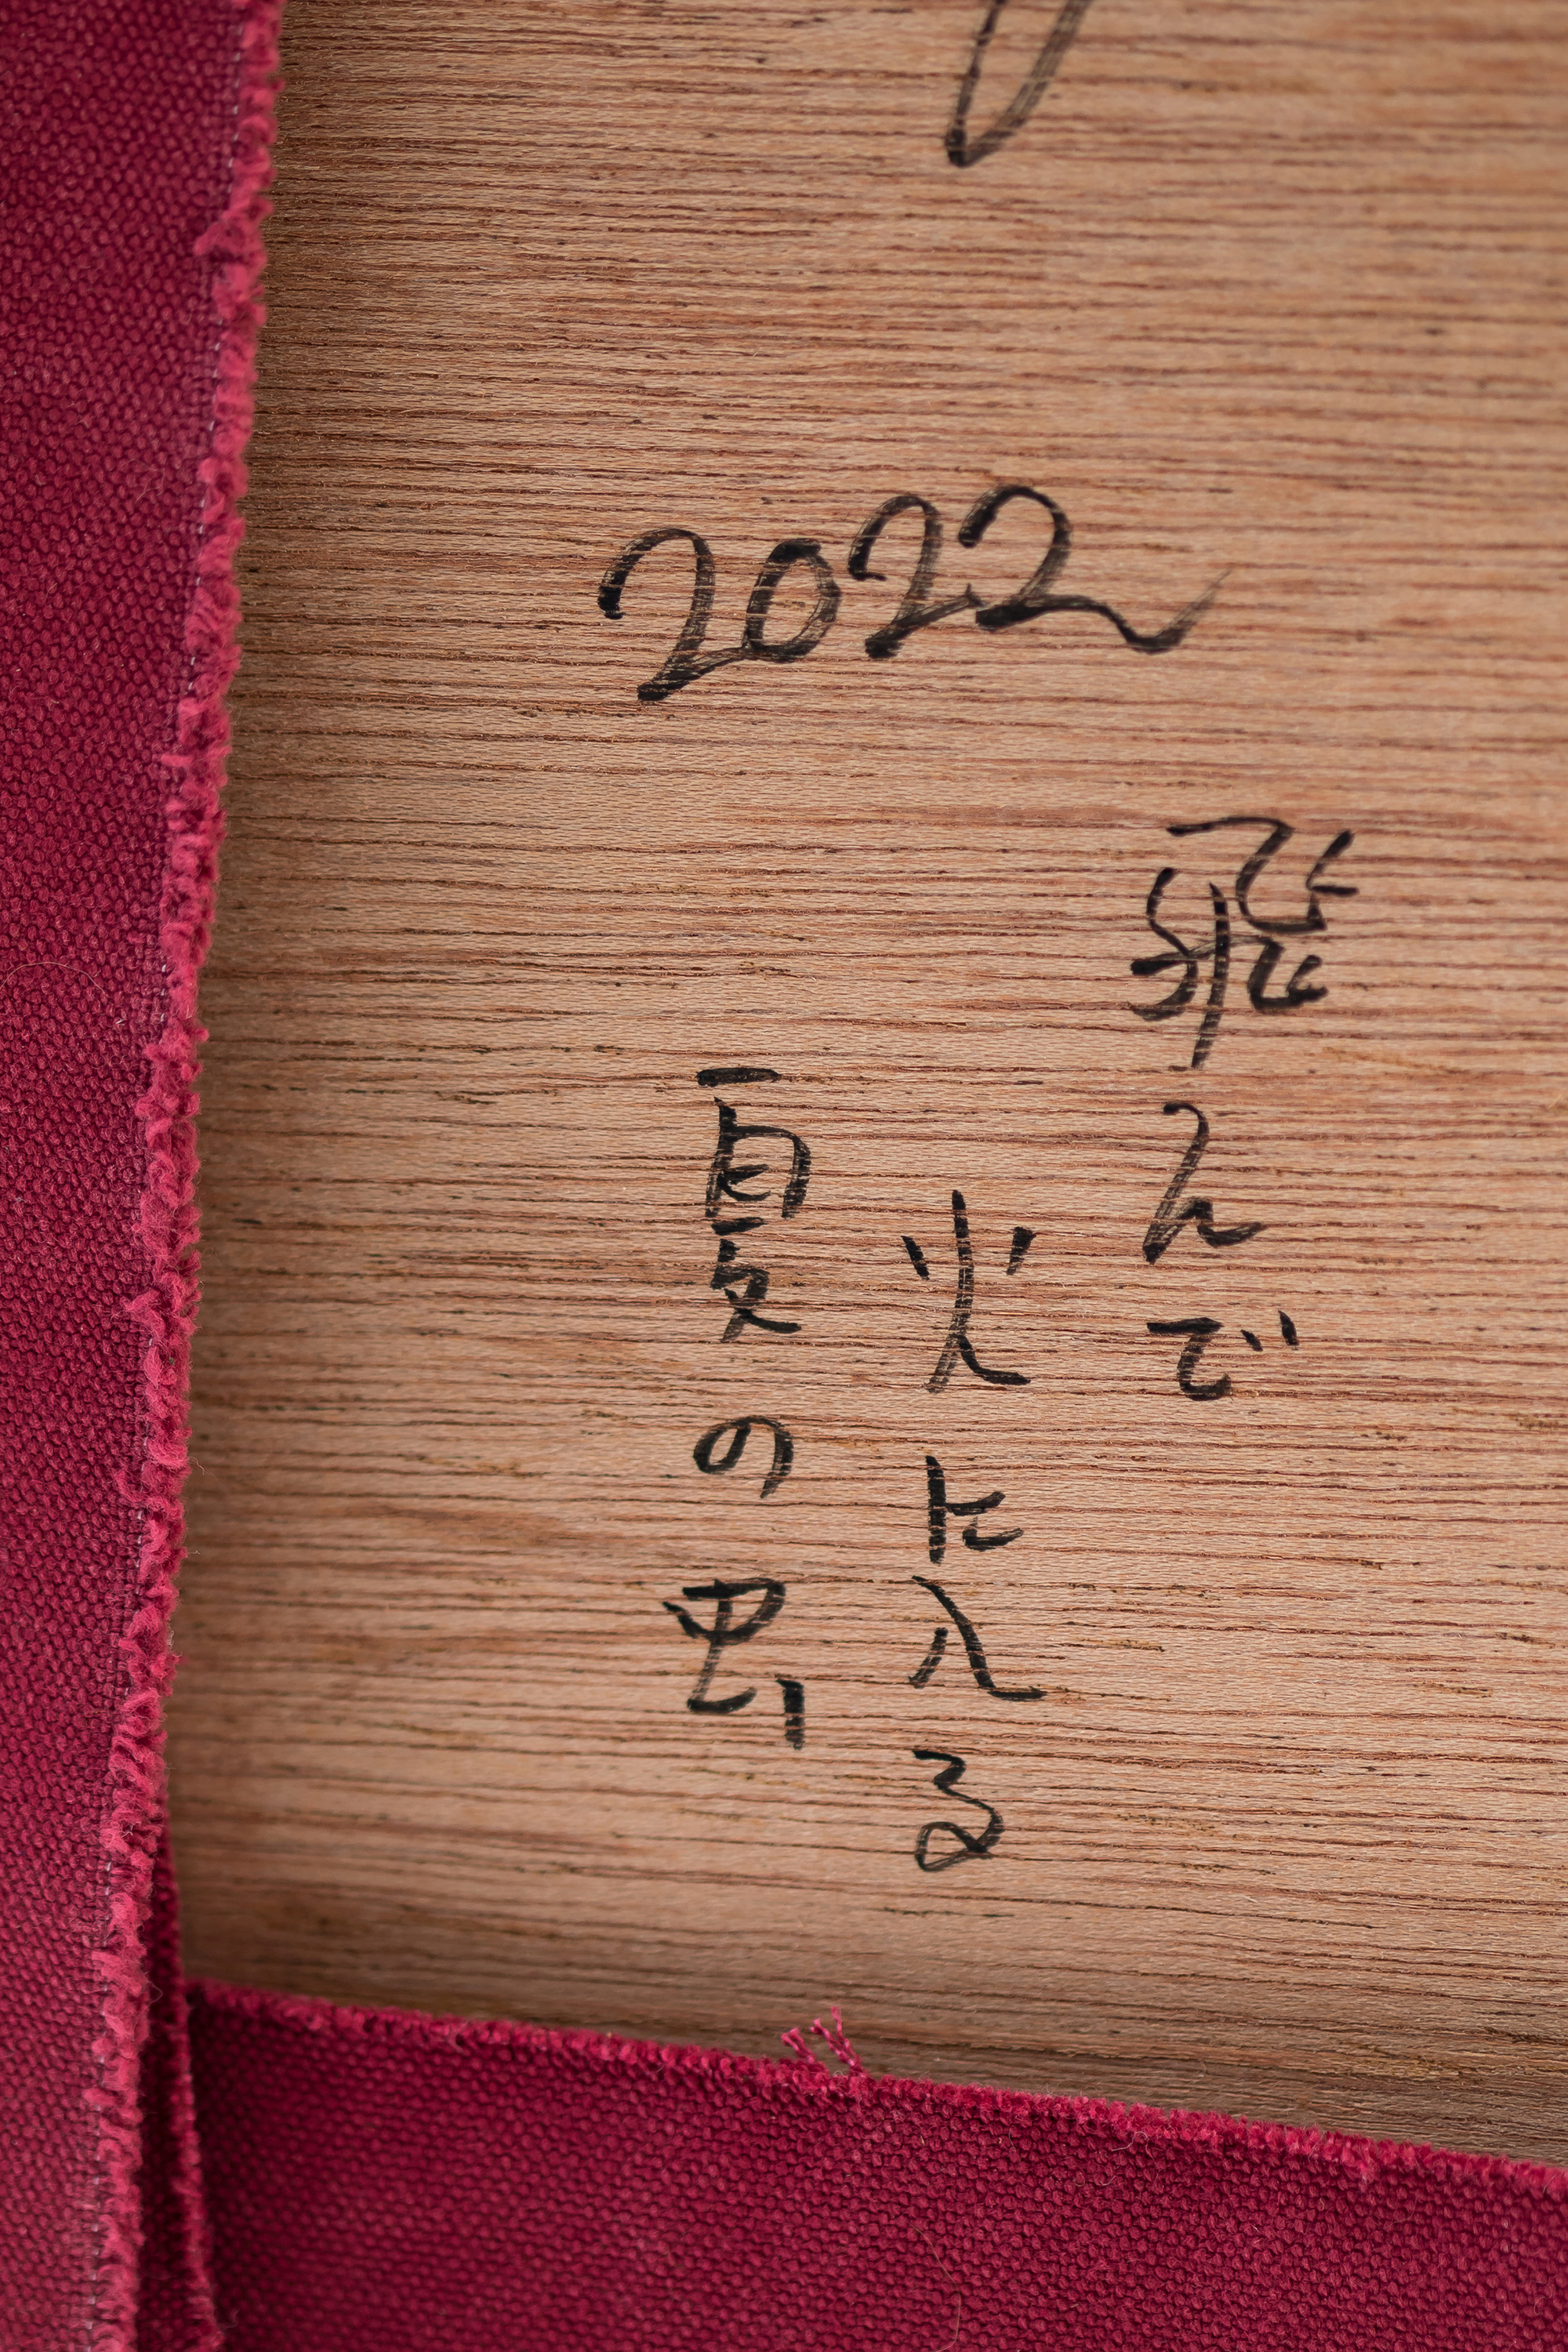 2022
飛んで
火に入る
夏の虫